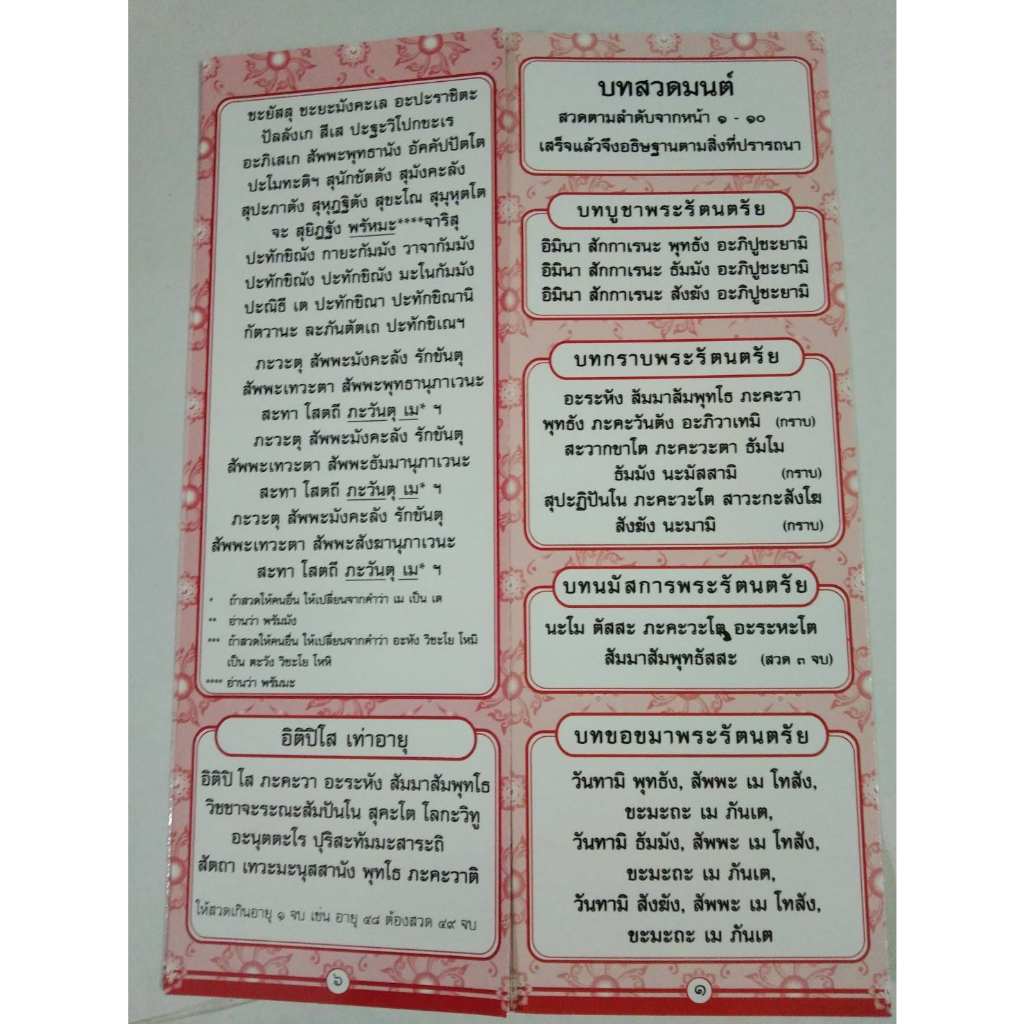 ชะยัสสุ ชะยะมังคะเล อะปะราชิตะ
ปัลลังเก สีเส ปะฐะวิโปกขะเร
อะภิเสเก สัพพะพุทธานัง อัคคัปปัตโต
ปะโมทะติฯ สุนักขัตตัง สุมังคะลัง
สุปะภาตัง สุหุฏฐิตัง สุขะโณ สุมุหุตโต
จะ สุยิฏฐัง พรัหมะ****จาริสุ
ปะทักขิณัง กายะกัมมัง วาจากัมมัง
ปะทักขิณัง ปะทักขิณัง มะโนกัมมัง
ปะณิธี เต ปะทักขิณา ปะทักขิณานิ
กัตวานะ ละภันตัตเถ ปะทักขิเณฯ
ภะวะตุ สัพพะมังคะลัง รักขันตุ
สัพพะเทวะตา สัพพะพุทธานุภาเวนะ
สะทา โสตถี ภะวันตุ เม* ฯ
ภะวะตุ สัพพะมังคะลัง รักขันตุ
สัพพะเทวะตา สัพพะธัมมานุภาเวนะ
สะทา โสตถี ภะวันตุ เม* ฯ
ภะวะตุ สัพพะมังคะลัง รักขันตุ
สัพพะเทวะตา สัพพะสังฆานุภาเวนะ
สะทา โสตถี ภะวันตุ เม* ฯ
* ถ้าสวดให้คนอื่น ให้เปลี่ยนจากคำว่า เม เป็น เต
** อ่านว่า พรัมมัง
*** ถ้าสวดให้คนอื่น ให้เปลี่ยนจากคำว่า อะหัง วิชะโย โหมิ
เป็น ตะวัง วิชะโย โหหิ
**** อ่านว่า พรัมมะ
อิติปิโส เท่าอายุ
อิติปิ โส ภะคะวา อะระหัง สัมมาสัมพุทโธ
วิชชาจะระณะสัมปันโน สุคะโต โลกะวิทู
อะนุตตะโร ปุริสะทัมมะสาระถิ
สัตถา เทวะมะนุสสานัง พุทโธ ภะคะวาติ
ให้สวดเกินอายุ ๑ จบ เช่น อายุ ๔๘ ต้องสวด ๔๙ จบ
๖
บทสวดมนต์
สวดตามลำดับจากหน้า ๑ - ๑๐
เสร็จแล้วจึงอธิษฐานตามสิ่งที่ปรารถนา
บทบูชาพระรัตนตรัย
อิมินา สักกาเรนะ พุทธัง อะภิปูชะยามิ
อิมินา สักกาเรนะ ธัมมัง อะภิปูชะยามิ
อิมินา สักกาเรนะ สังฆัง อะภิปูชะยามิ
บทกราบพระรัตนตรัย
อะระหัง สัมมาสัมพุทโธ ภะคะวา
พุทธัง ภะคะวันตัง อะภิวาเทมิ (กราบ)
สะวากขาโต ภะคะวะตา ธัมโม
ธัมมัง นะมัสสามิ (กราบ)
สุปะฏิปันโน ภะคะวะโต สาวะกะสังโฆ
สังฆัง นะมามิ (กราบ)
บทนมัสการพระรัตนตรัย
นะโม ตัสสะ ภะคะวะโต อะระหะโต
สัมมาสัมพุทธัสสะ (สวด ๓ จบ)
บทขอขมาพระรัตนตรัย
วันทามิ พุทธัง, สัพพะ เม โทสัง,
ขะมะถะ เม ภันเต,
วันทามิ ธัมมัง, สัพพะ เม โทสัง,
ขะมะถะ เม ภันเต,
วันทามิ สังฆัง, สัพพะ เม โทสัง,
ขะมะถะ เม ภันเต
๑